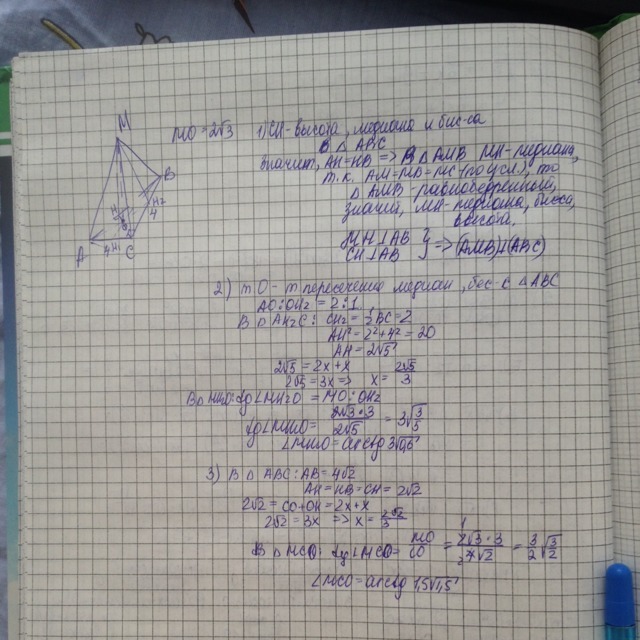 M
MO = 2√3 1) CH - высота, медиана и бис-са
В △ ABC
Значит, AH = HB => В △ AMB MH - медиана,
т.к. AM = MB = MC (по усл), то
△ AMB - равнобедренный,
значит, MH - медиана, бисси,
высота.
B
H
H2
4
O
A
4
H1
C
MH ⊥ AB }
CH ⊥ AB } => (AMB) ⊥ (ABC)
2) т O - т пересечения медиан, бис-с △ ABC
AO : OH2 = 2 : 1
В △ AH2C : CH2 = ½BC = 2
AH² = 2² + 4² = 20
AH = 2√5
2√5 = 2x + x
2√5 = 3x => x = 2√5/3
В △ MH2O: tg ∠MH2O = MO : OH2
tg ∠MH2O = 2√3·3/2√5 = 3√3/5
∠MH2O = arctg 3√0,6
3) В △ ABC: AB = 4√2
AH = HB = CH = 2√2
2√2 = CO + OH = 2x + x
2√2 = 3x => x = 2√2/3
В △ MCO: tg ∠MCO = MO/CO = 2√3·3/4√2 = 3/2√3/2
∠MCO = arctg 1,5√1,5